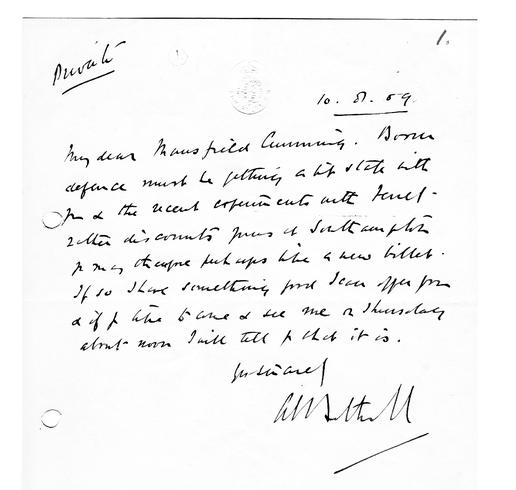 1.
Private
10. 8. 09.
My dear Mansfield Cumming. Boom
defence must be getting a bit stale with
you & the recent experiments with Ferret
rather discounts yours at Southampton
you may therefore perhaps like a new billet.
If so I have something good I can offer you
& if you like to come & see me on Thursday
about noon I will tell you what it is.
Yrs sincerely
A E Bethell